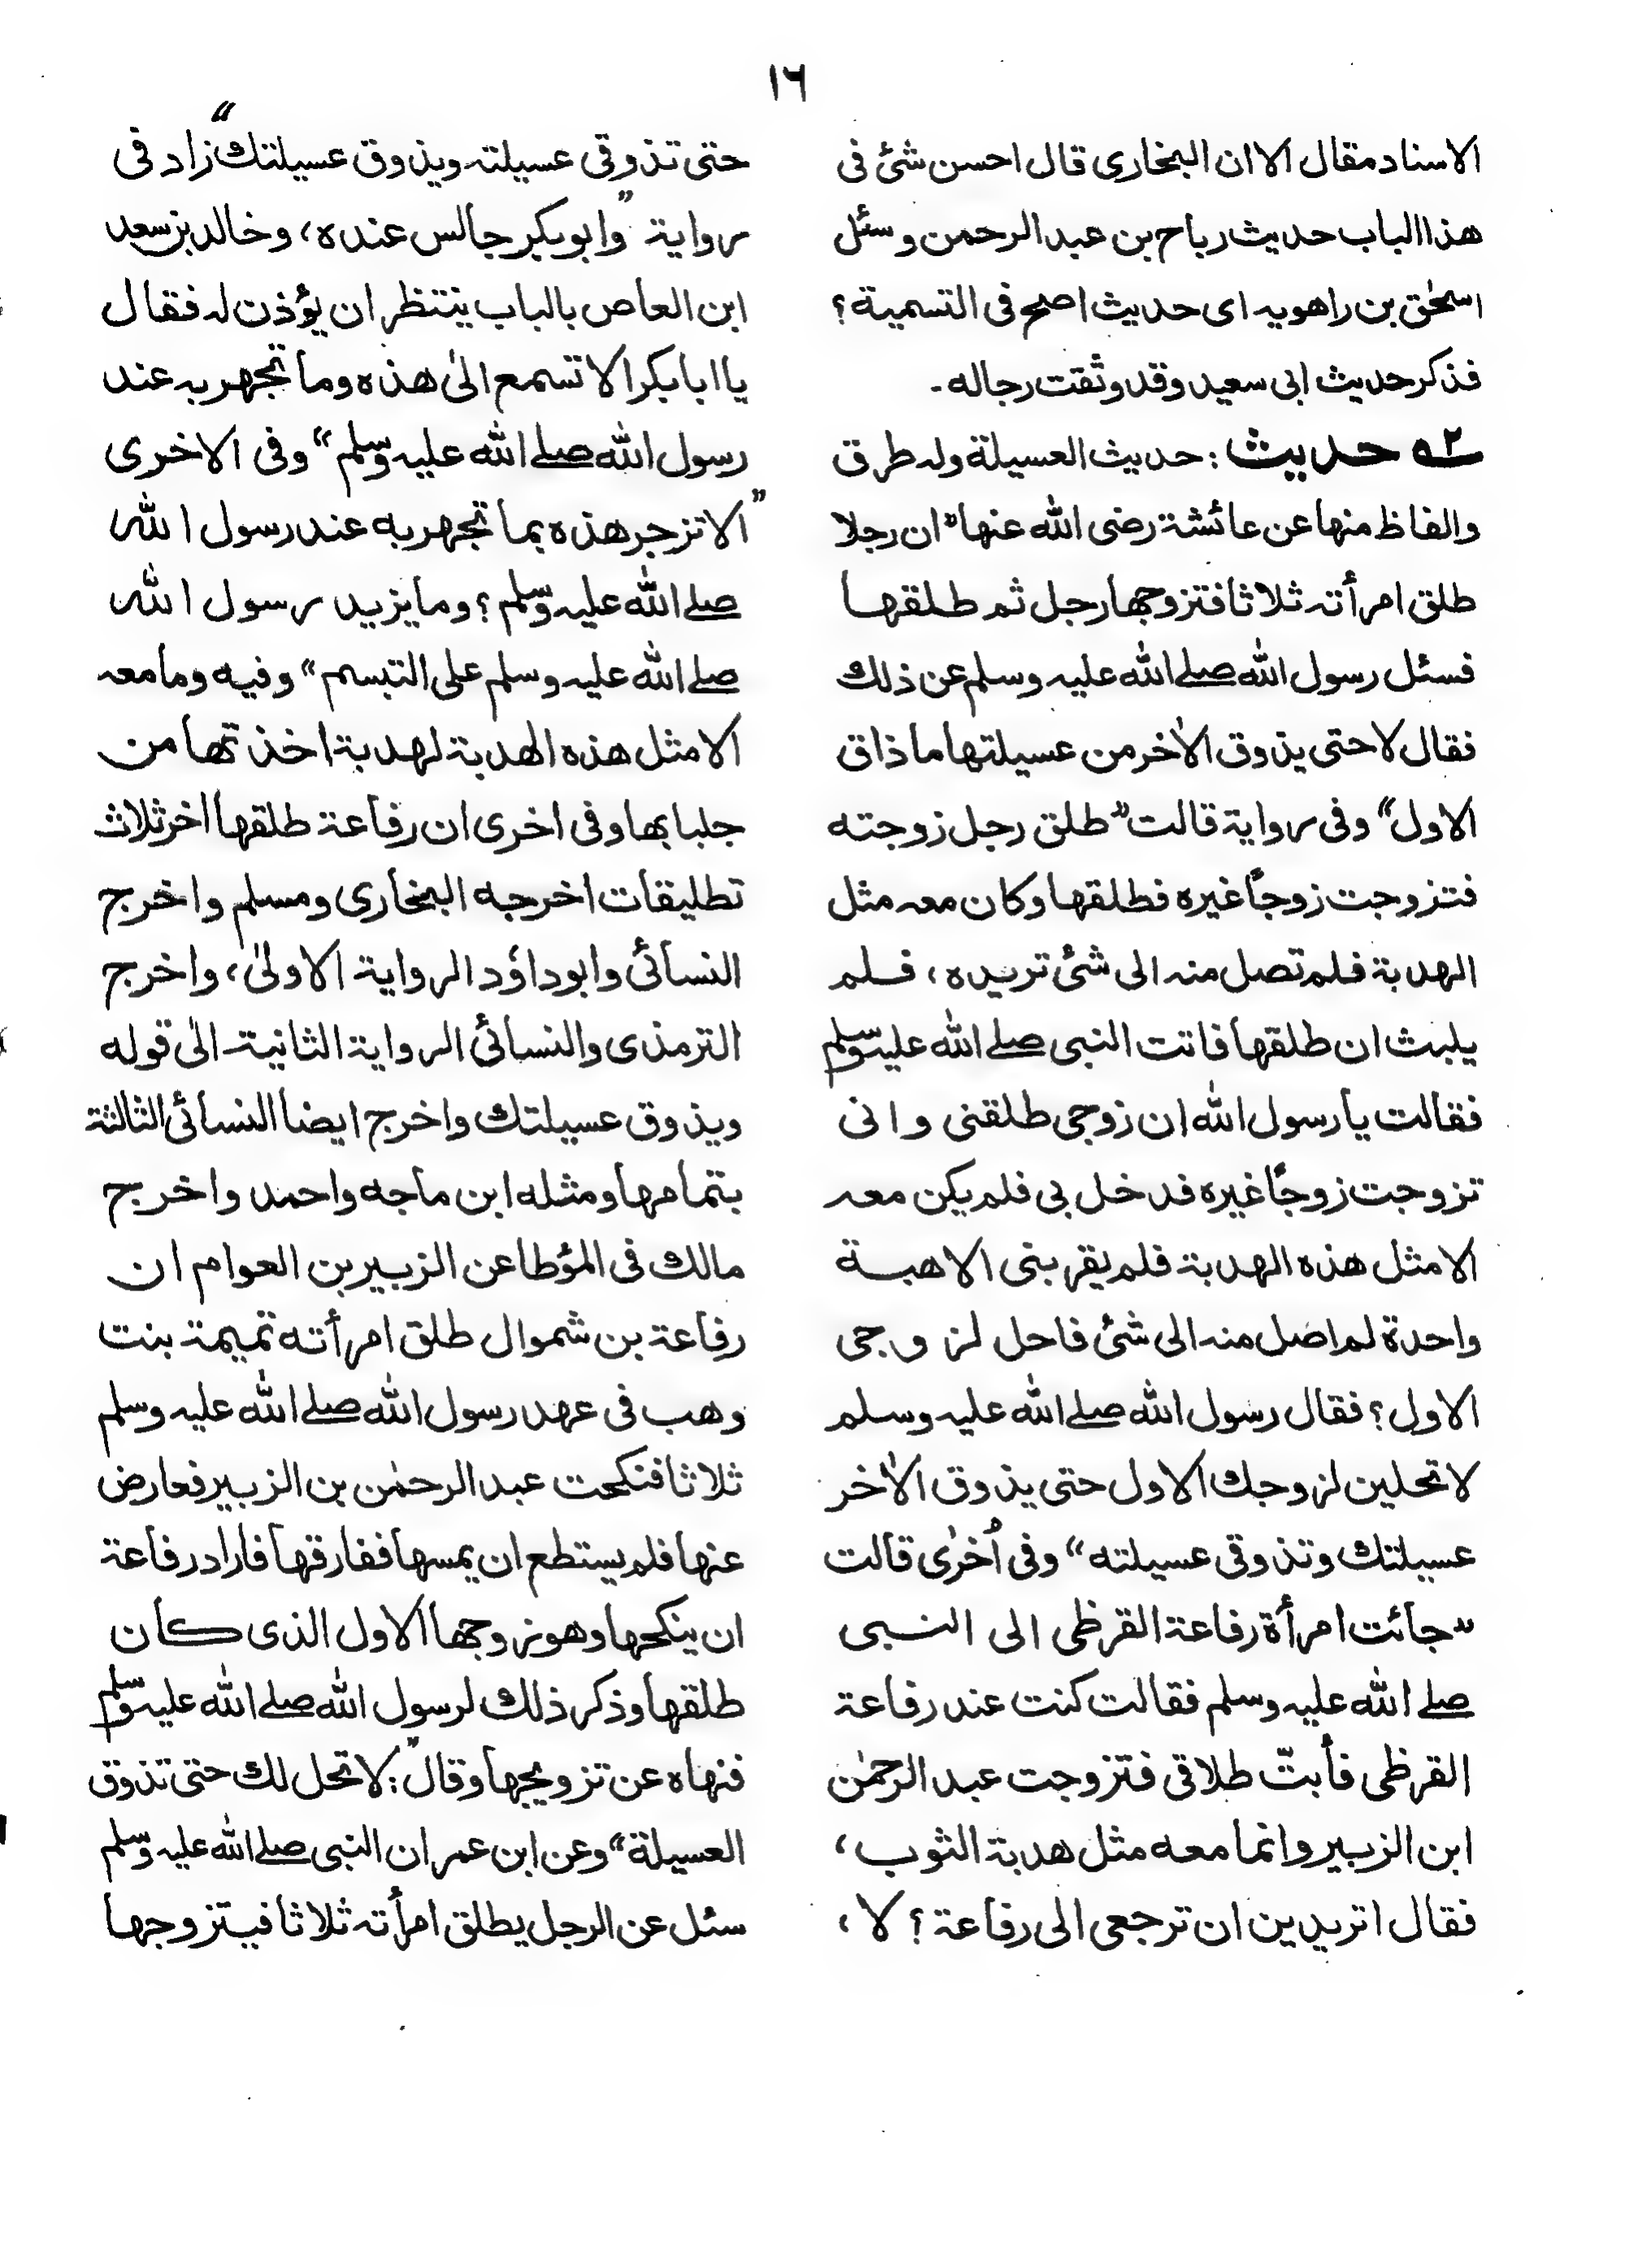 ١٦
الاسناد مقال الا ان البخارى قال احسن شئ فى
هذا الباب حديث رباح بن عبد الرحمن وسئل
اسحٰق بن راهويه اى حديث اصح فى التسمية؟
فذكر حديث ابى سعيد وقد وثقت رجاله۔
٥٢ حديث: حديث العسيلة وله طرق
والفاظ منها عن عائشة رضى الله عنها "ان رجلا
طلق امرأته ثلاثا فتزوجها رجل ثم طلقها
فسئل رسول الله صلے الله عليه وسلم عن ذلك
فقال لا حتى يذوق الاٰخر من عسيلتها ما ذاق
الاول" وفى رواية قالت "طلق رجل زوجته
فتزوجت زوجًا غيره فطلقها وكان معه مثل
الهدبة فلم تصل منه الى شئ تريده، فلم
يلبث ان طلقها فاتت النبى صلے الله عليه وسلم
فقالت يا رسول الله ان زوجى طلقنى وانى
تزوجت زوجًا غيره فدخل بى فلم يكن معه
الا مثل هذه الهدبة فلم يقربنى الا هبة
واحدة لم اصل منه الى شئ فاحل لزوجى
الاول؟ فقال رسول الله صلے الله عليه وسلم
لا تحلين لزوجك الاول حتى يذوق الاٰخر
عسيلتك وتذوقى عسيلته" وفى اُخرٰى قالت
"جائت امرأة رفاعة القرظى الى النبى
صلے الله عليه وسلم فقالت كنت عند رفاعة
القرظى فأبتّ طلاقى فتزوجت عبد الرحمٰن
ابن الزبير وانما معه مثل هدبة الثوب،
فقال اتريدين ان ترجعى الى رفاعة؟ لا،
حتى تذوقى عسيلته ويذوق عسيلتك" زاد فى
رواية "وابوبكر جالس عنده، وخالد بن سعد
ابن العاص بالباب ينتظر ان يؤذن له فقال
يا ابابكر الا تسمع الىٰ هذه وما تجهر به عند
رسول الله صلے الله عليه وسلم" وفى الاخرى
"الا تزجر هذه بما تجهر به عند رسول الله
صلے الله عليه وسلم؟ وما يزيد رسول الله
صلے الله عليه وسلم على التبسم" وفيه وما معه
الا مثل هذه الهدبة لهدبة اخذتها من
جلبابها وفى اخرى ان رفاعة طلقها اٰخر ثلاث
تطليقات اخرجه البخارى ومسلم واخرج
النسائى وابوداوٗد الرواية الاولىٰ، واخرج
الترمذى والنسائى الرواية الثانية الىٰ قوله
ويذوق عسيلتك واخرج ايضا النسائى الثالثة
بتمامها ومثله ابن ماجه واحمد واخرج
مالك فى المؤطا عن الزبير بن العوام ان
رفاعة بن شموال طلق امرأته تميمة بنت
وهب فى عهد رسول الله صلے الله عليه وسلم
ثلاثا فنكحت عبد الرحمٰن بن الزبير فعارض
عنها فلم يستطع ان يمسها ففارقها فاراد رفاعة
ان ينكحها وهو زوجها الاول الذى كان
طلقها وذكر ذلك لرسول الله صلے الله عليه وسلم
فنهاه عن تزويجها وقال: "لا تحل لك حتى تذوق
العسيلة" وعن ابن عمر ان النبى صلے الله عليه وسلم
سئل عن الرجل يطلق امرأته ثلاثا فيتزوجها